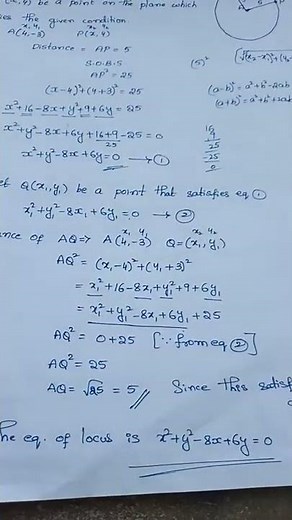 (x, y) be a point on the plane which
the given condition.
x₁ y₁ x₂ y₂
A(4,-3) P(x, y)
Distance = AP = 5
S.O.B.S (5)²
AP² = 25
(x-4)²+(y+3)² = 25 (a-b)² = a²+b²-2ab
x²+16-8x+y²+9+6y = 25 (a+b)² = a²+b²+2ab
x²+y²-8x+6y+16+9-25=0
x²+y²-8x+6y=0 → ①
16
9
25
-25
0
Q(x₁,y₁) be a point that satisfies eq ①
x₁²+y₁²-8x₁+6y₁=0 → ②
x₁ y₁ x₂ y₂
of AQ => A(4,-3) Q=(x₁, y₁)
AQ² = (x₁-4)²+(y₁+3)²
= x₁²+16-8x₁+y₁²+9+6y₁
= x₁²+y₁²-8x₁+6y₁+25
AQ² = 0+25 [∵ from eq ②]
AQ² = 25
AQ = √25 = 5 // Since this
The eq. of locus is x²+y²-8x+6y=0